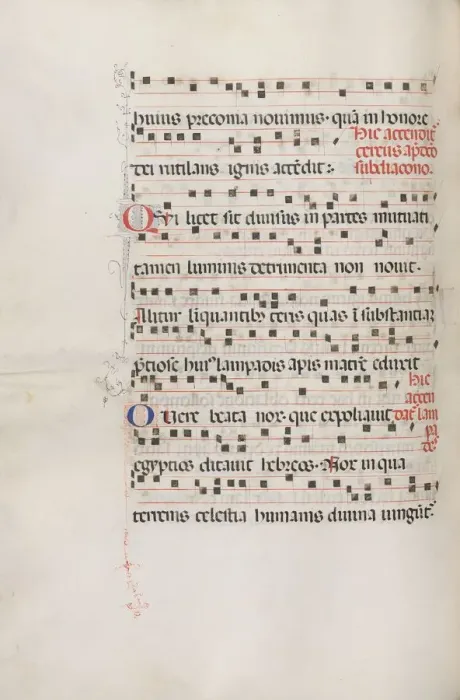 huius preconia novimus. quā in honore
Hic accendit
cereus ap̄ceō
subdiacono.
dei rutilans ignis accēdit:
Qui licet sit divisus in partes mutuati
tamen luminis detrimenta non novit.
Alitur liquantibꝫ ceris quas ī substantiaꝫ
p̄tiose huiꝰ lampadis apis matre eduxit
Hic
accen
dāt̄ lam
pa
de
O vere beata nox. que expoliavit
egyptios ditavit hebreos. Nox in qua
terrenis celestia humanis divina iungūt̄.